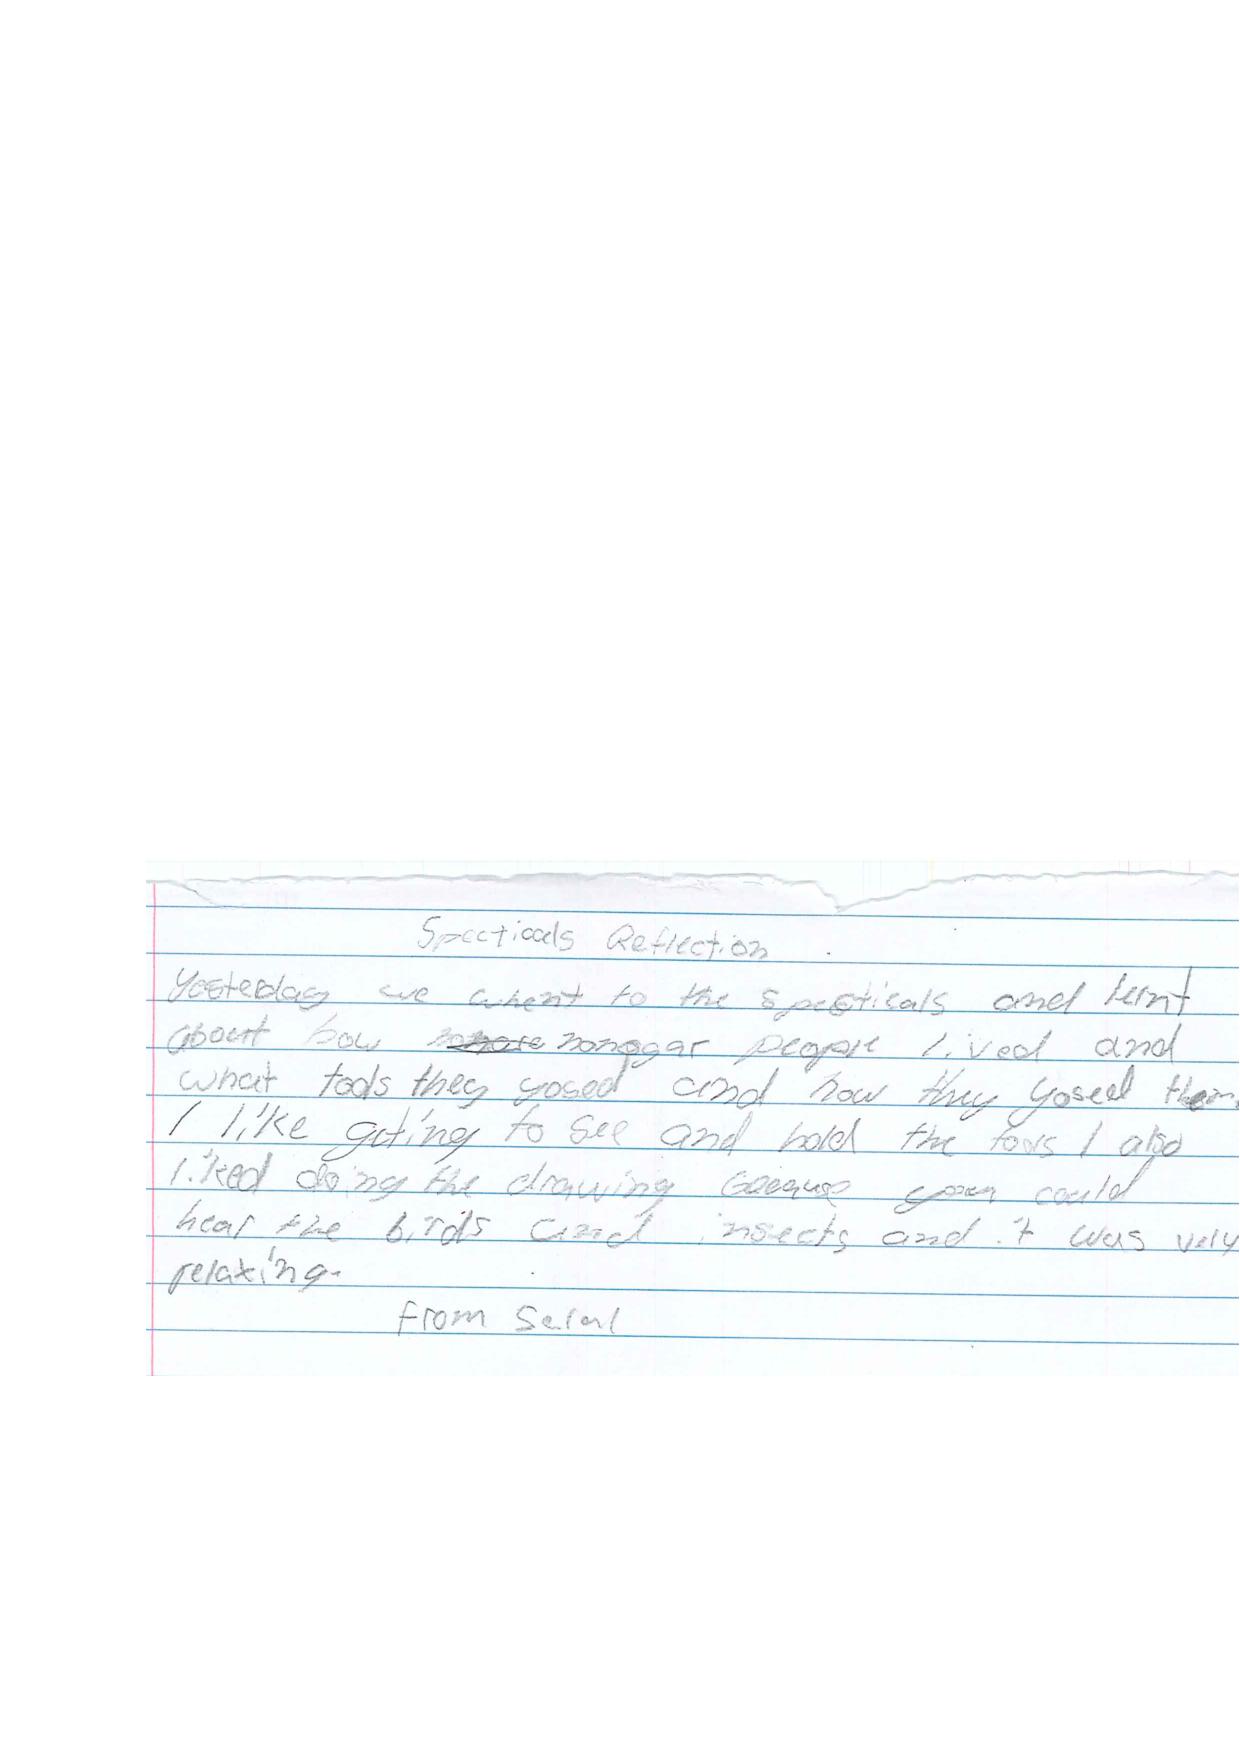 Specticals Reflection
Yesterday we whent to the specticals and lernt
about how nonggar people lived and
what tools they yosed and how they yosed them.
I like geting to see and hold the tools I also
liked doing the drawing because you could
hear the birds and insects and it was very
relaxing.
from